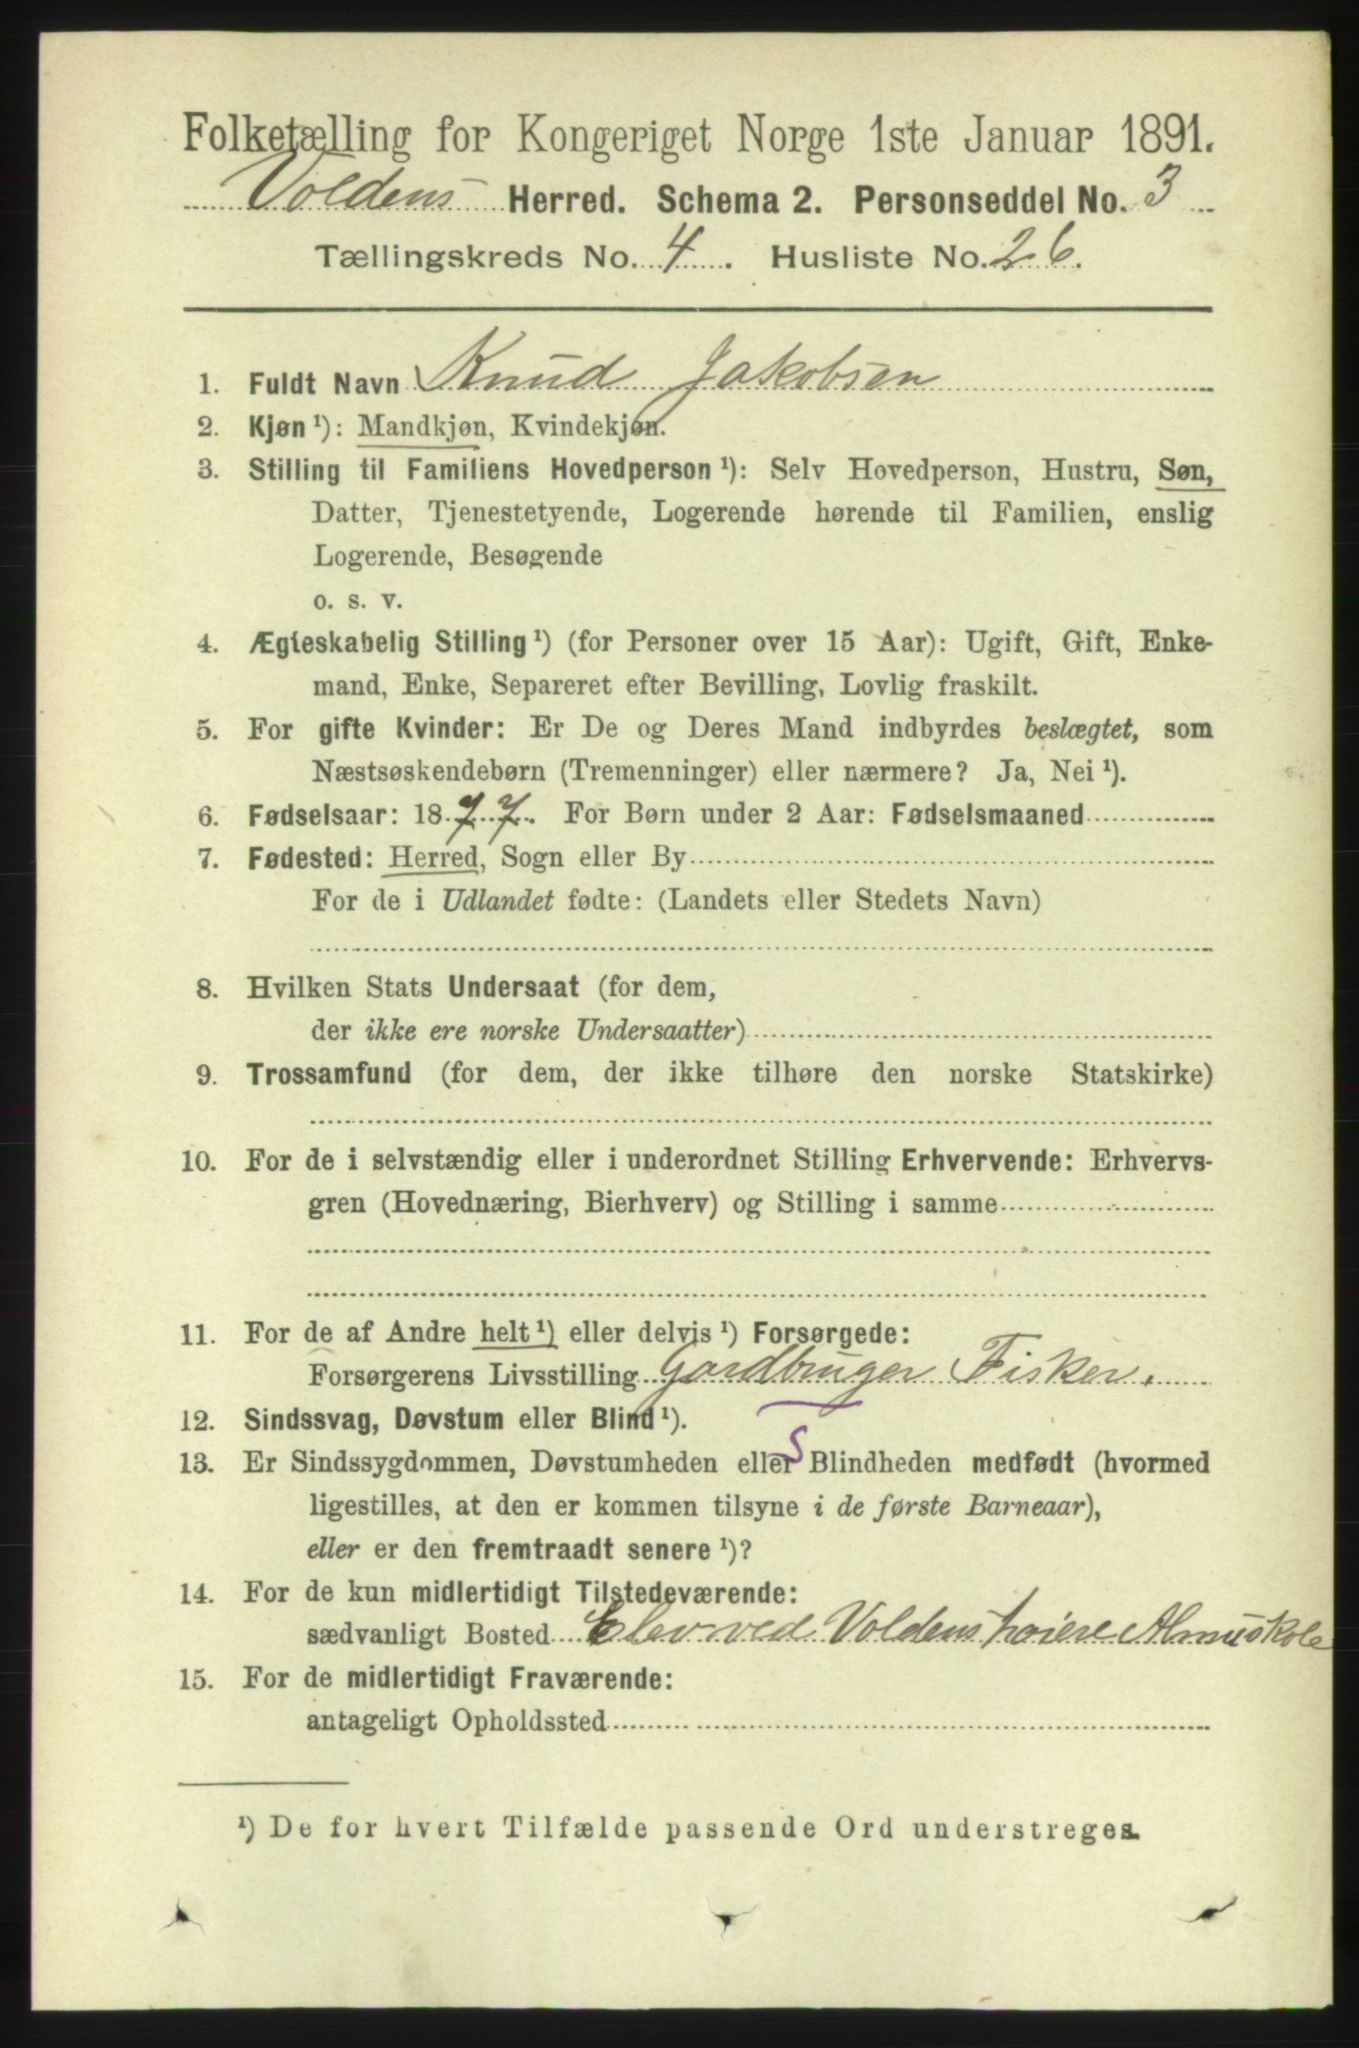 Folketælling for Kongeriget Norge 1ste Januar 1891.
Voldens Herred. Schema 2. Personseddel No. 3
Tællingskreds No. 4. Husliste No. 26.
1. Fuldt Navn Knud Jakobsen
2. Kjøn ¹): Mandkjøn, Kvindekjøn.
3. Stilling til Familiens Hovedperson ¹): Selv Hovedperson, Hustru, Søn,
Datter, Tjenestetyende, Logerende hørende til Familien, enslig
Logerende, Besøgende
o. s. v.
4. Ægteskabelig Stilling ¹) (for Personer over 15 Aar): Ugift, Gift, Enke-
mand, Enke, Separeret efter Bevilling, Lovlig fraskilt.
5. For gifte Kvinder: Er De og Deres Mand indbyrdes beslægtet, som
Næstsøskendebørn (Tremenninger) eller nærmere? Ja, Nei ¹).
6. Fødselsaar: 1877. For Børn under 2 Aar: Fødselsmaaned
7. Fødested: Herred, Sogn eller By
For de i Udlandet fødte: (Landets eller Stedets Navn)
8. Hvilken Stats Undersaat (for dem,
der ikke ere norske Undersaatter)
9. Trossamfund (for dem, der ikke tilhøre den norske Statskirke)
10. For de i selvstændig eller i underordnet Stilling Erhvervende: Erhvervs-
gren (Hovednæring, Bierhverv) og Stilling i samme
11. For de af Andre helt ¹) eller delvis ¹) Forsørgede:
Forsørgerens Livsstilling Gardbruger Fisker.
12. Sindssvag, Døvstum eller Blind ¹).
S
13. Er Sindssygdommen, Døvstumheden eller Blindheden medfødt (hvormed
ligestilles, at den er kommen tilsyne i de første Barneaar),
eller er den fremtraadt senere ¹)?
14. For de kun midlertidigt Tilstedeværende:
sædvanligt Bosted Elev ved Voldens høiere Almuskole
15. For de midlertidigt Fraværende:
antageligt Opholdssted
¹) De for hvert Tilfælde passende Ord understreges.